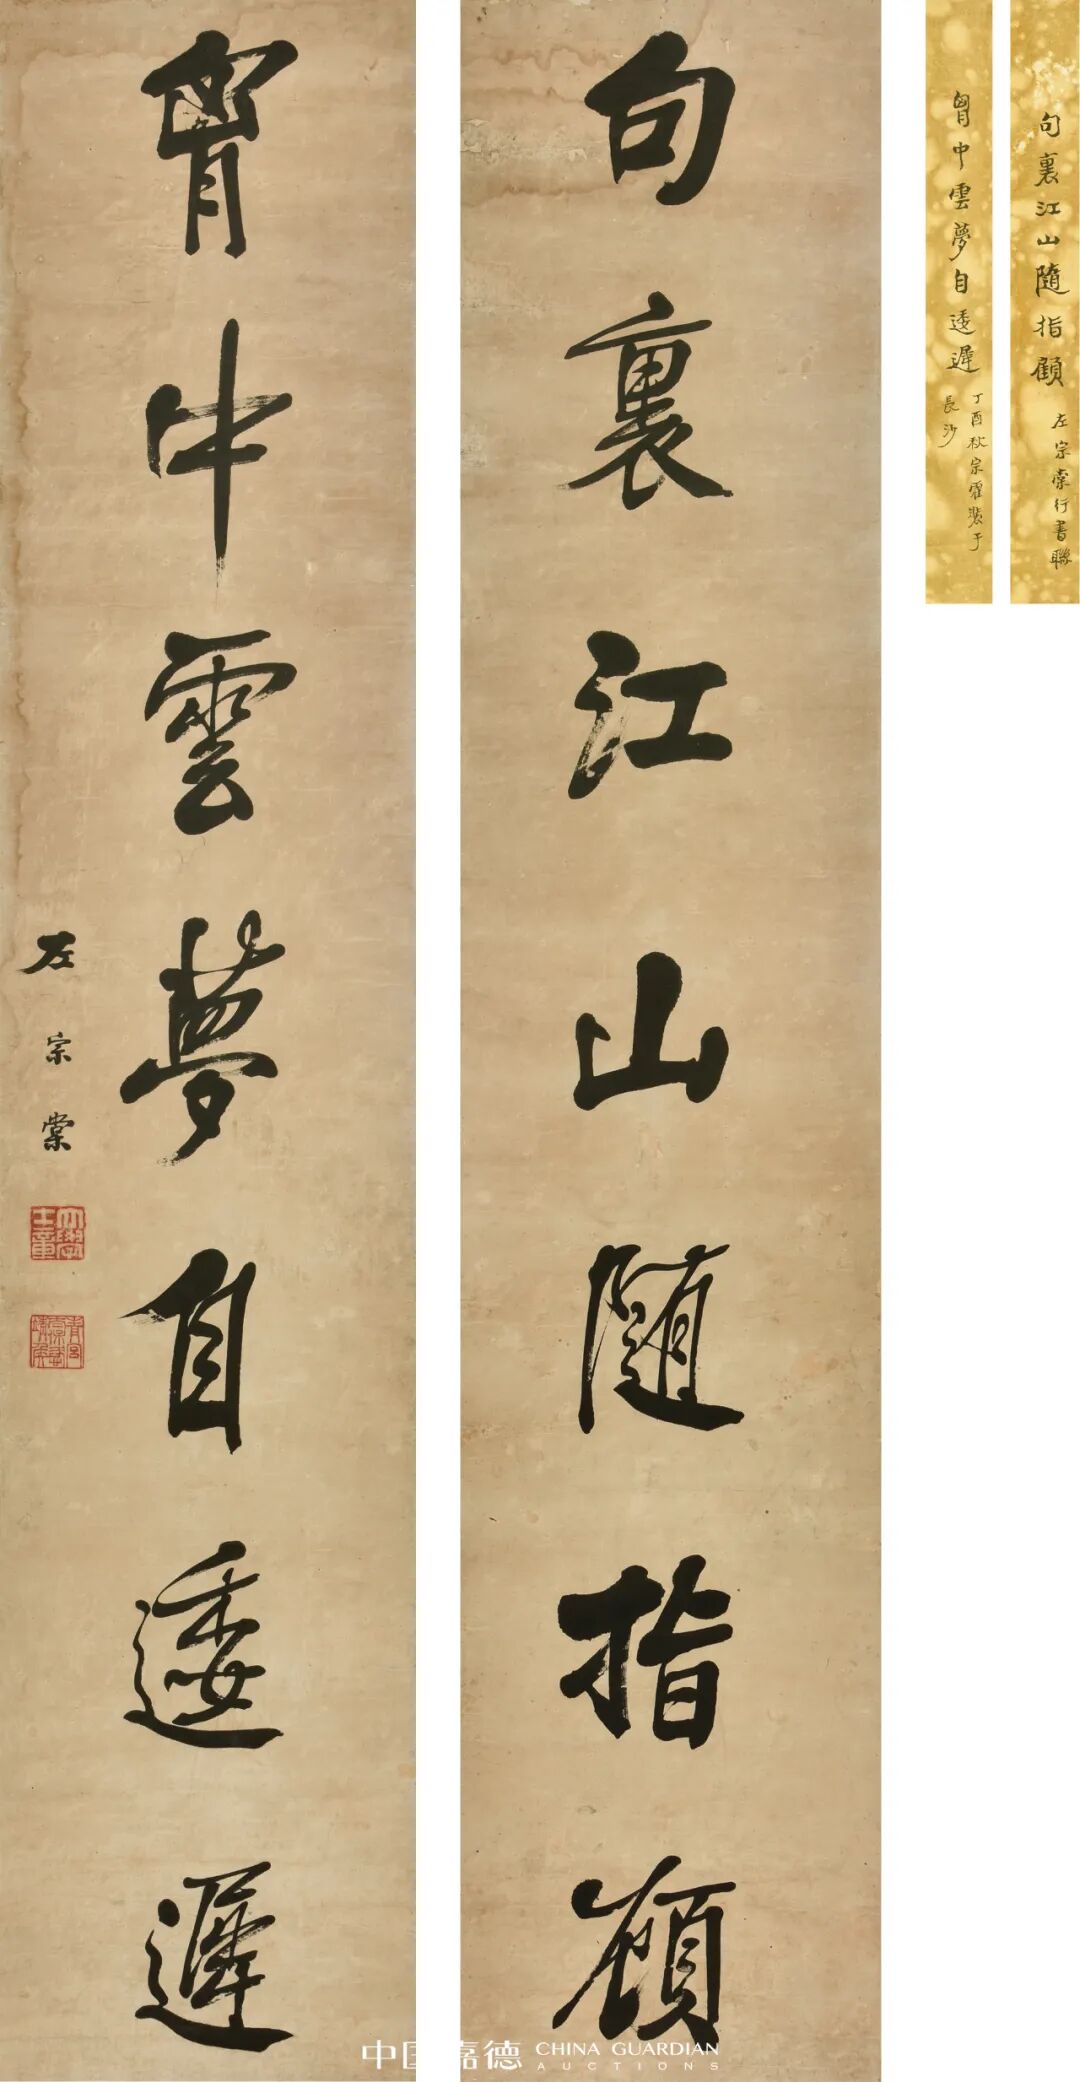 句裏江山隨指顧
左宗棠行書聯
胷中雲夢自逶遲
丁酉秋宗霍裝于
長沙
句裏江山隨指顧
胷中雲夢自逶遲
左宗棠
大學士章
中国嘉德 CHINA GUARDIAN
AUCTIONS